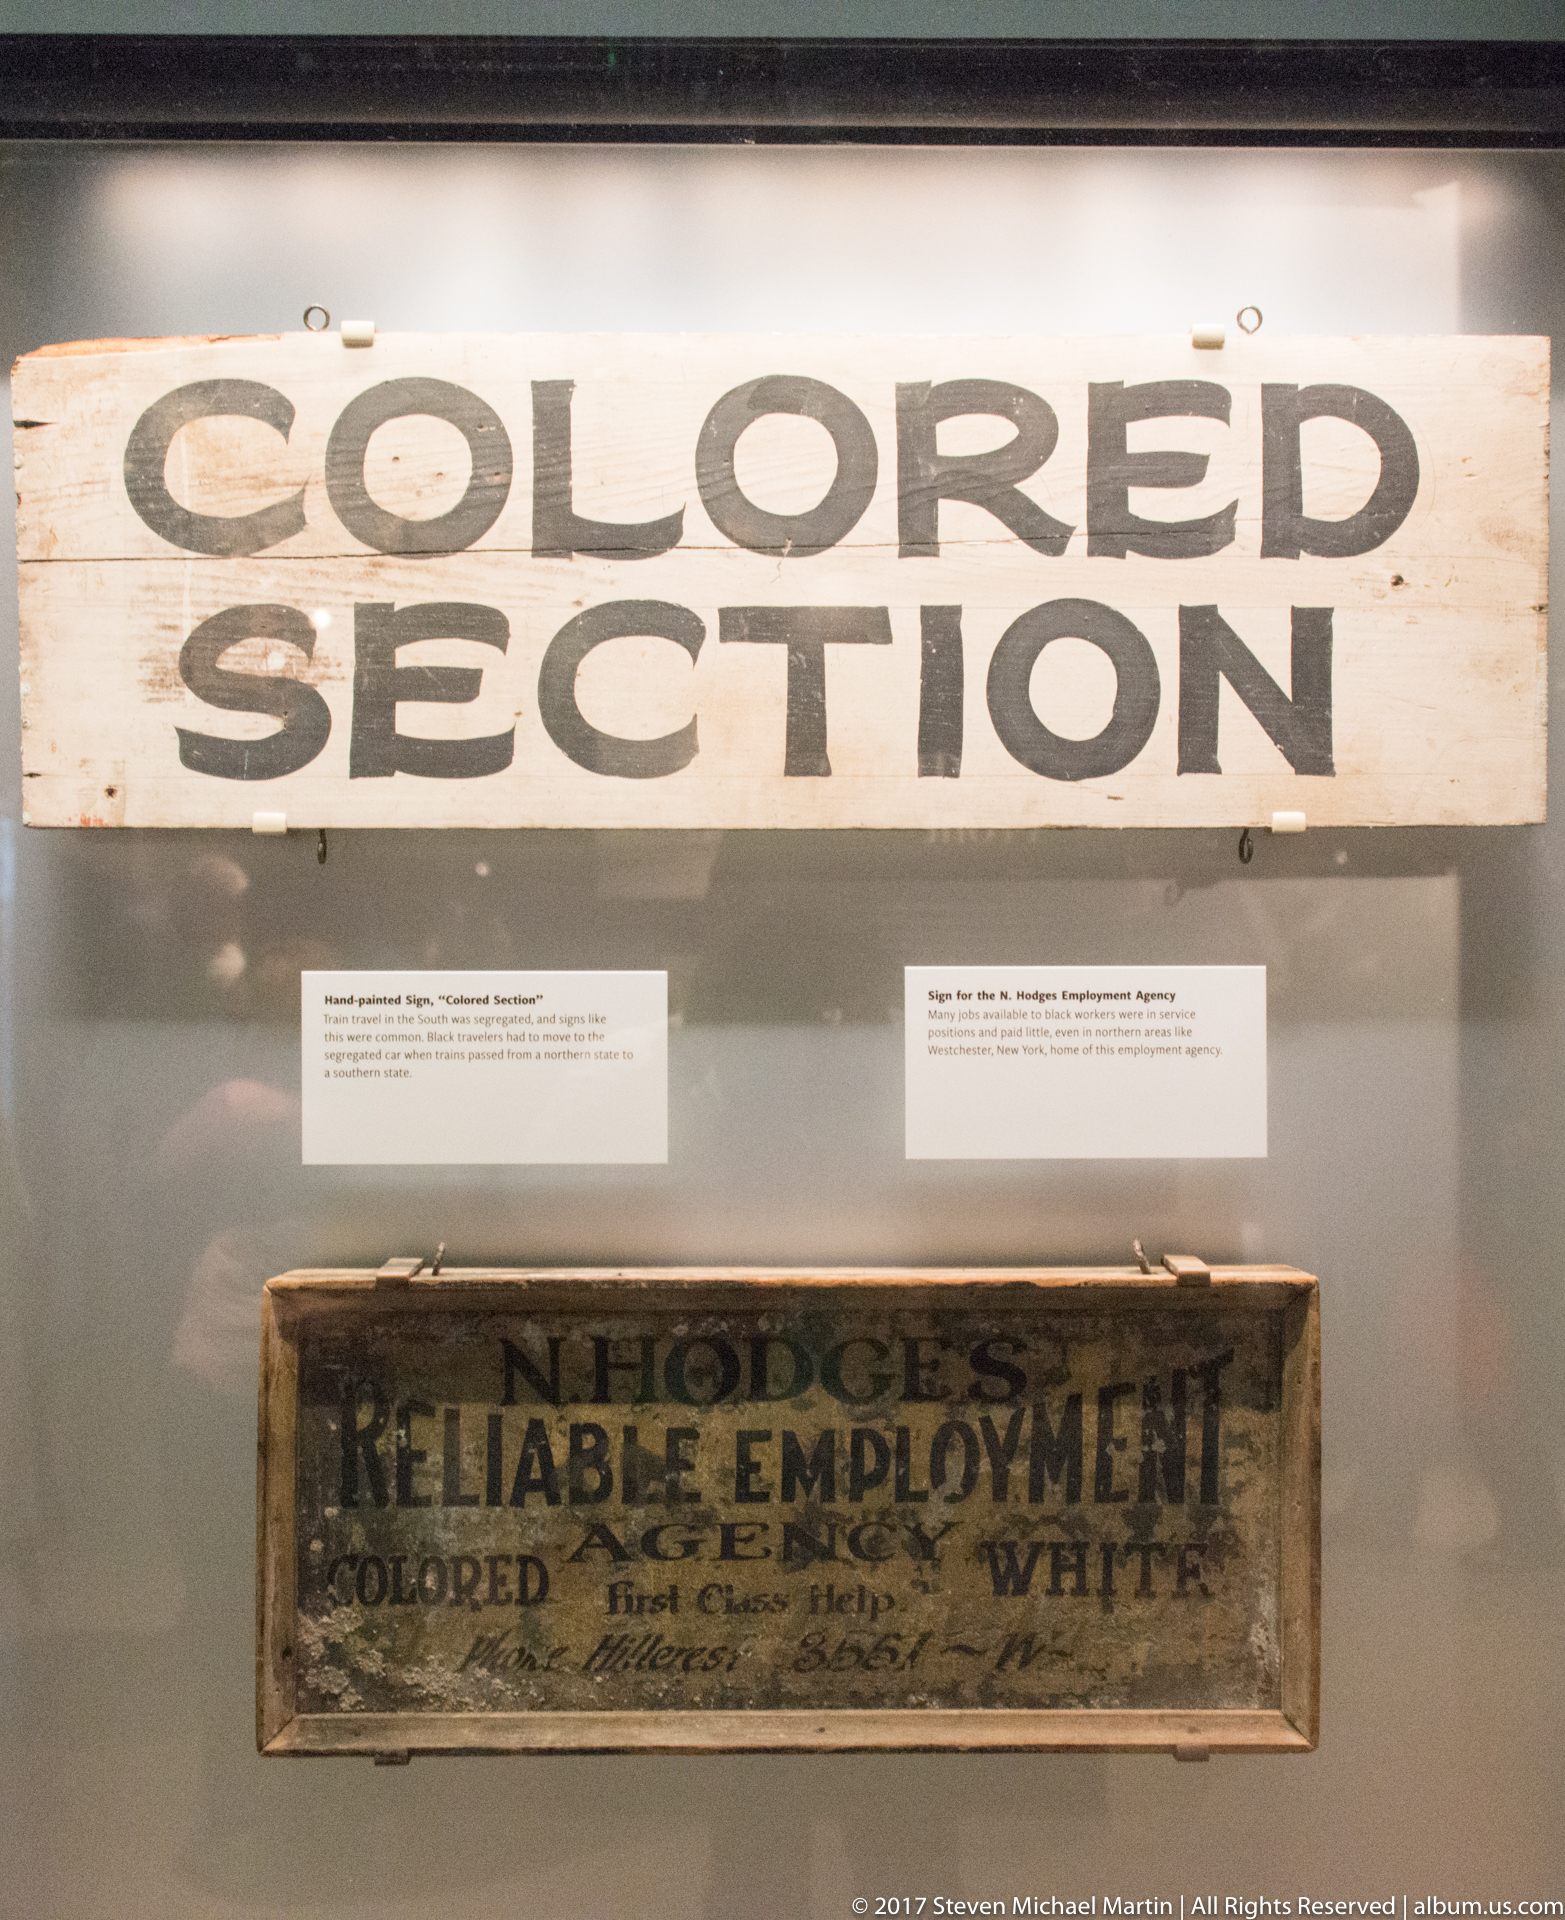 COLORED
SECTION
Hand-painted Sign, “Colored Section”
Train travel in the South was segregated, and signs like
this were common. Black travelers had to move to the
segregated car when trains passed from a northern state to
a southern state.
Sign for the N. Hodges Employment Agency
Many jobs available to black workers were in service
positions and paid little, even in northern areas like
Westchester, New York, home of this employment agency.
N. HODGES
RELIABLE EMPLOYMENT
AGENCY
COLORED First Class Help. WHITE
Phone Hillcrest 3551~W~
© 2017 Steven Michael Martin | All Rights Reserved | album.us.com